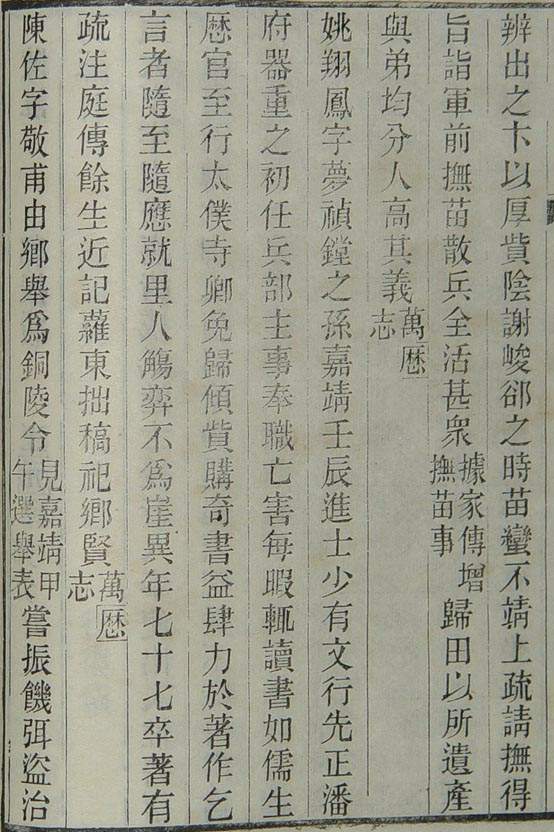 辨出之卞以厚貲陰謝峻卻之時苗蠻不靖上疏請撫得
旨詣軍前撫苗散兵全活甚衆據家傳增撫苗事歸田以所遺產
與弟均分人高其義萬厯志
姚翔鳳字夢禎鏜之孫嘉靖壬辰進士少有文行先正潘
府器重之初任兵部主事奉職亡害每暇輒讀書如儒生
厯官至行太僕寺卿免歸傾貲購奇書益肆力於著作乞
言者隨至隨應就里人觴弈不爲崖異年七十七卒著有
疏注庭傳餘生近記蘿東拙稿祀鄉賢萬厯志
陳佐字敬甫由鄉舉爲銅陵令見嘉靖甲午選舉表嘗振饑弭盜治